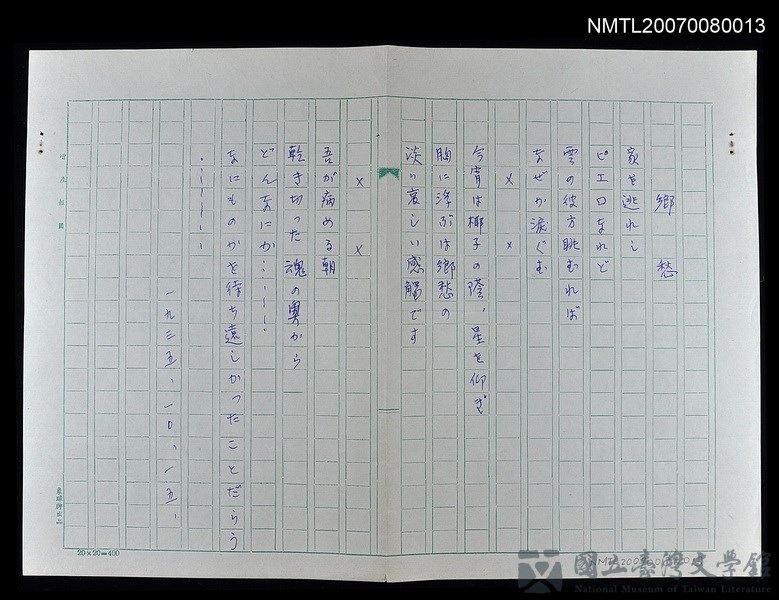 NMTL20070080013
郷愁
家を逃れし
ピエロなれど
雲の彼方眺むれば
なぜか涙ぐむ
× ×
今宵は椰子の蔭，星を仰ぎ
胸に浮ぶは郷愁の
淡い哀しい感觸です
× ×
吾が病める朝
乾き切った魂の奥から
どんなにか……
なにものかを待ち遠しかったことだらう
……
一九三五、一〇、一五、
20×20=400
國立臺灣文學館
National Museum of Taiwan Literature